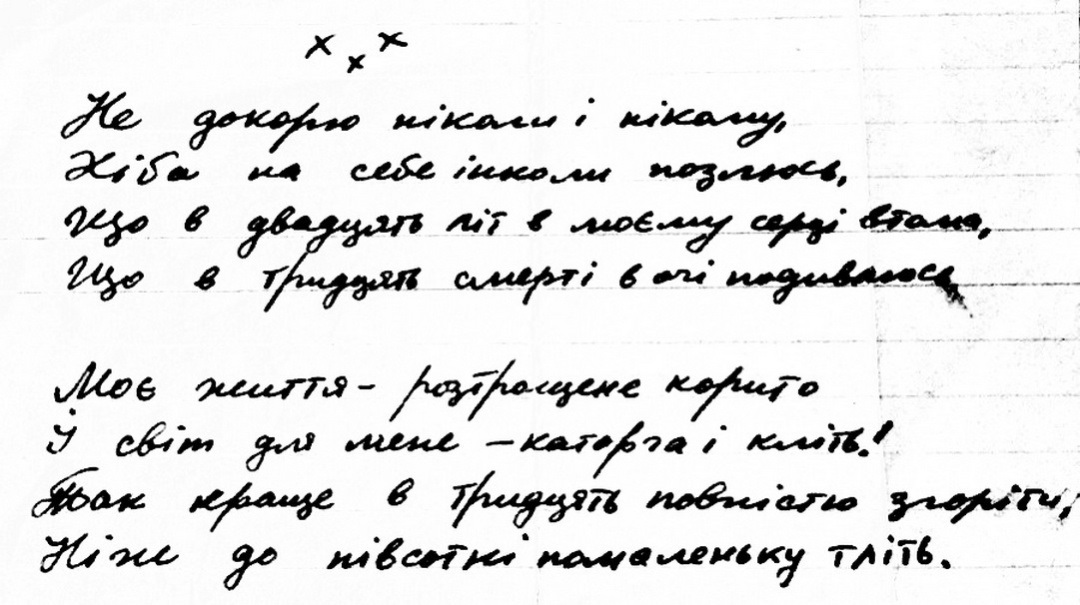 х х х
Не докорю ніколи і нікому,
Хіба на себе інколи позлюсь,
Що в двадцять літ в моєму серці втома,
Що в тридцять смерті в очі подивлюся.
Моє життя – розтрощене корито
І світ для мене – каторга і кліть!
Так краще в тридцять повністю згоріти,
Ніж до півсотні помаленьку тліть.